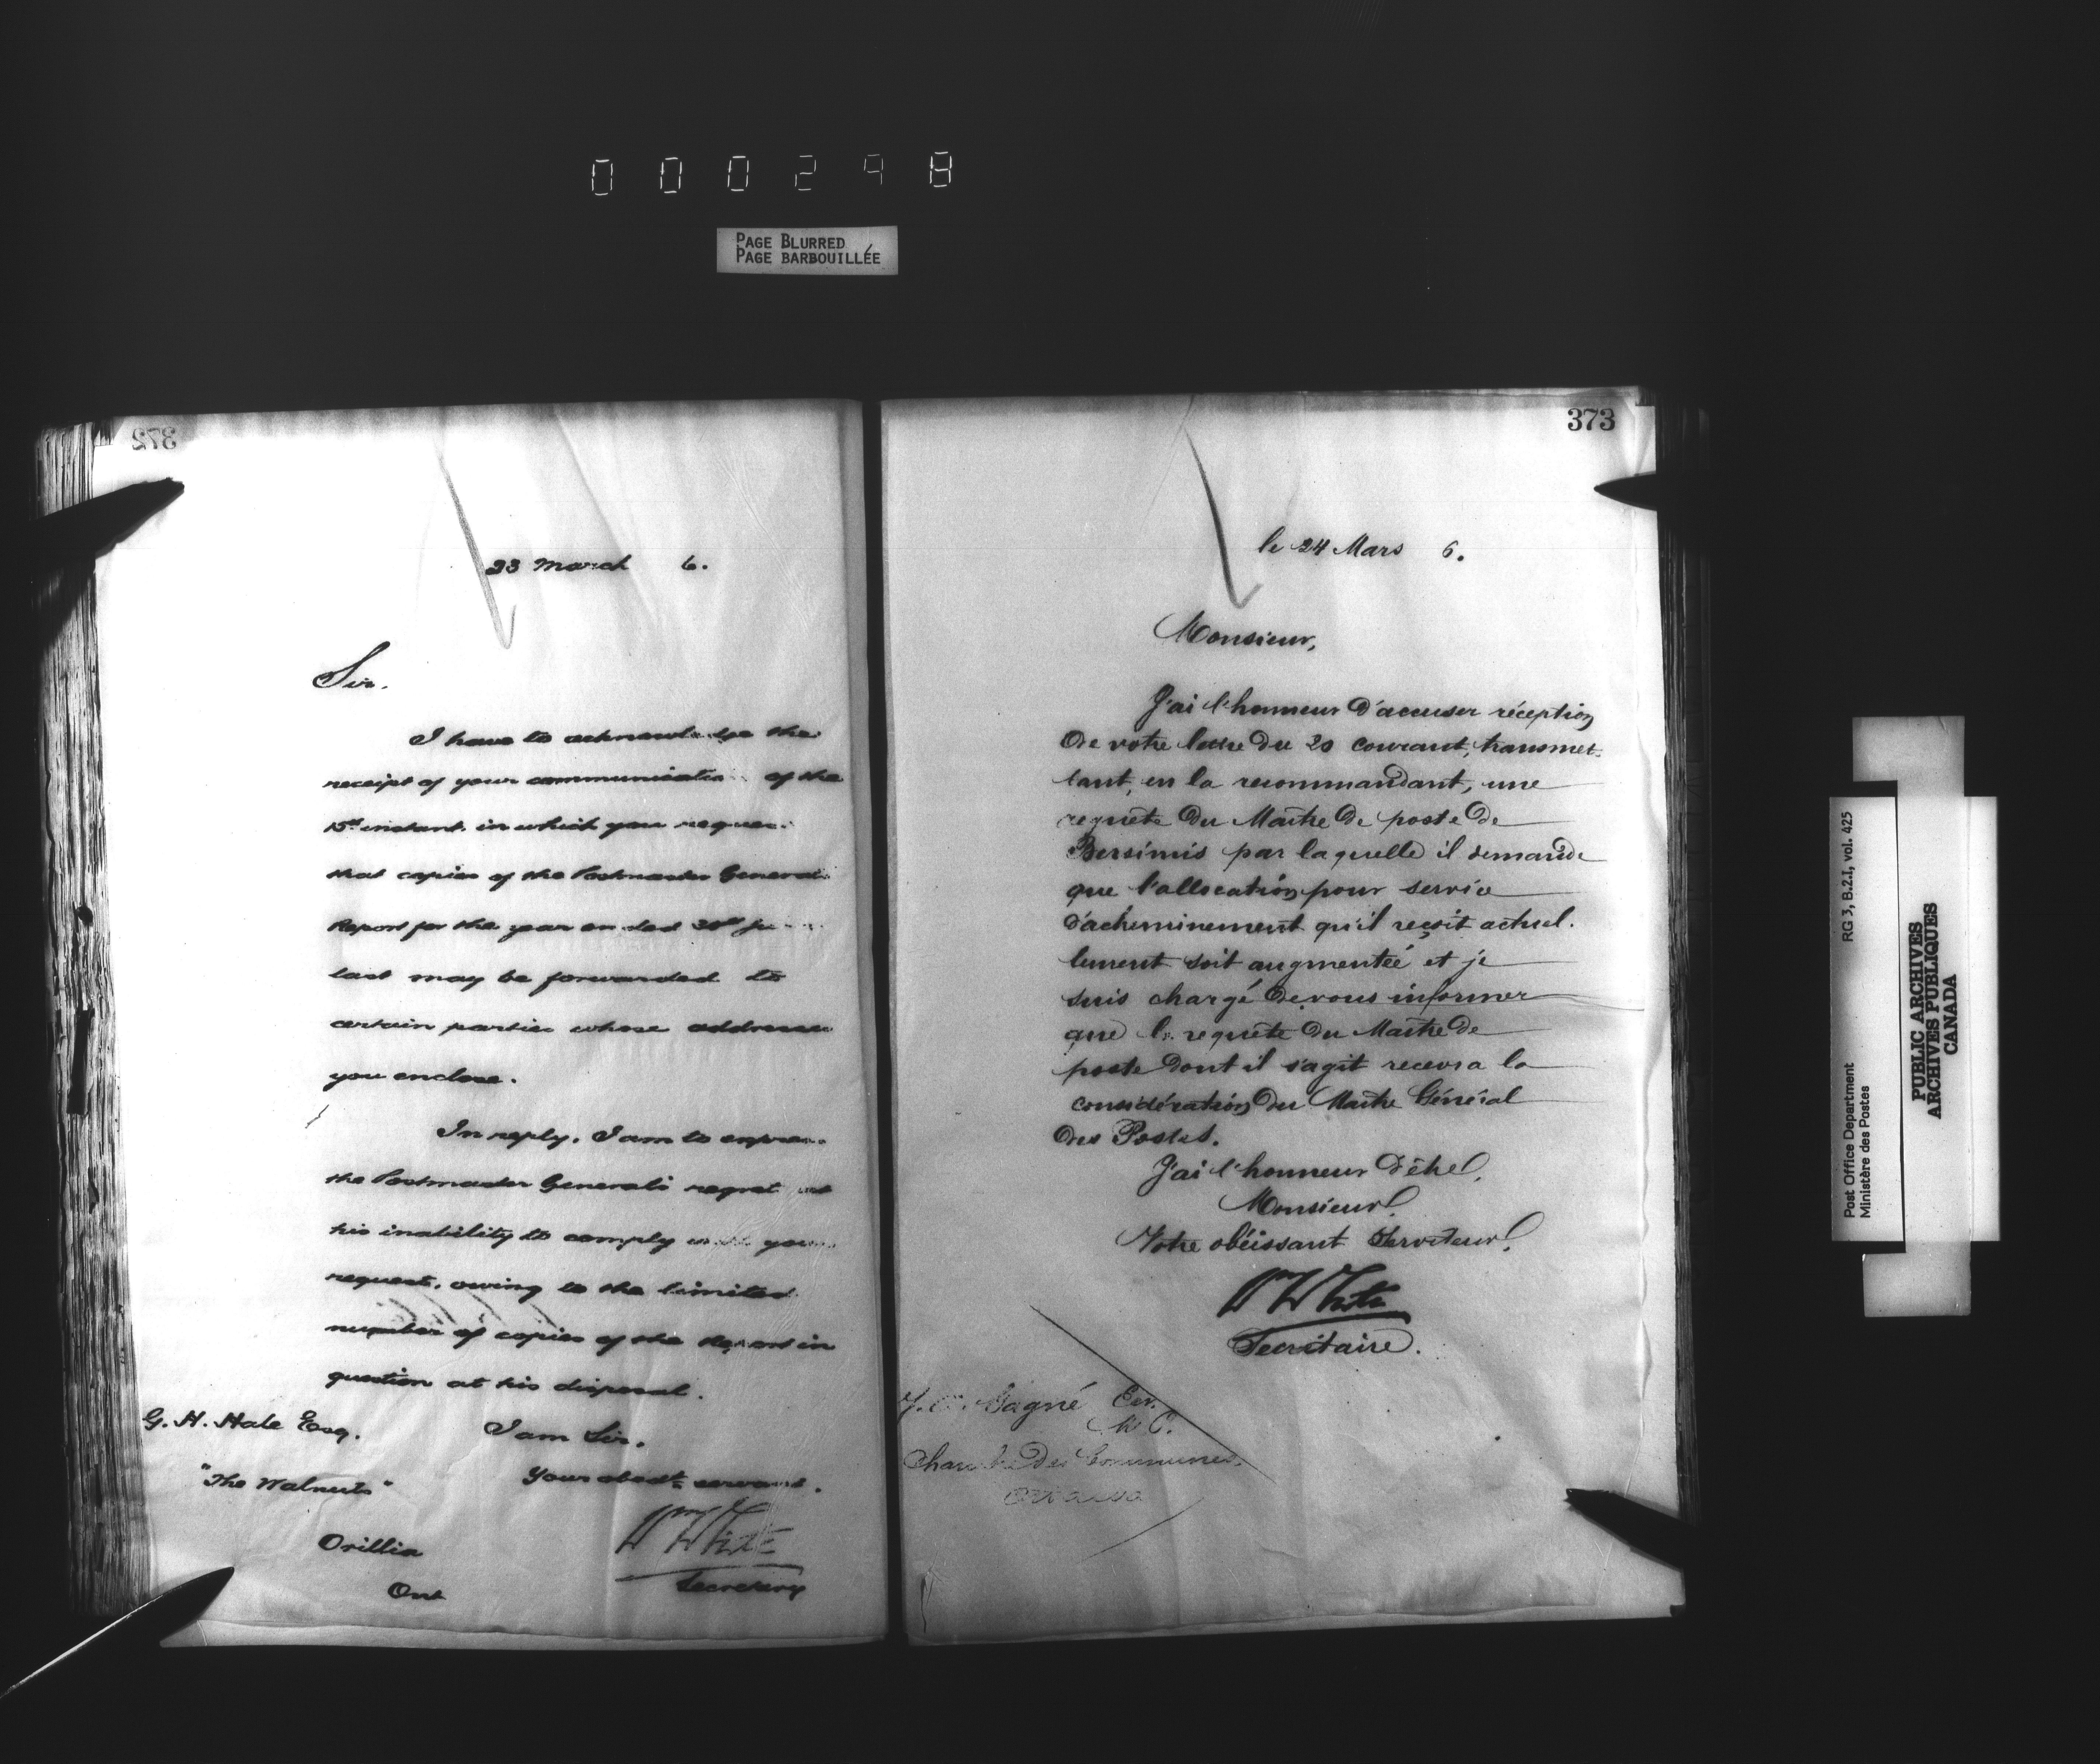 000298
PAGE BLURRED
PAGE BARBOUILLÉE
372
23 March 6.
Sir.
I have to acknowledge the
receipt of your communication of the
15th instant. in which you
that copies of the Postmaster General
Report for the year ended 30th
last may be forwarded to
certain parties whose addresses
you enclose.
In reply. I am to
the Postmaster General's regret at
his inability to comply with your
request, owing to the limited
number of copies of the Report in
question at his disposal.
G. H. Hale Esq. I am Sir.
"The Walnuts" Your obedt servant.
Orillia Wm White
Secretary
Ont
373
le 24 Mars 6.
Monsieur,
J'ai l'honneur d'accuser réception
de votre lettre du 20 courant, transmet-
tant, en la recommandant, une
requête du Maître de poste de
Bersimis par laquelle il demande
que l'allocation pour service
d'acheminement qu'il reçoit actuel-
lement soit augmentée et je
suis chargé de vous informer
que la requête du Maître de
poste dont il s'agit recevra la
considération du Maître Général
des Postes.
J'ai l'honneur d'être,
Monsieur,
Votre obéissant Serviteur,
Wm White
Secrétaire.
Gagné Ecr.
M.P.
Chambre des Communes
Ottawa
RG 3, B.2.I, vol. 425
Post Office Department
Ministère des Postes
PUBLIC ARCHIVES
ARCHIVES PUBLIQUES
CANADA